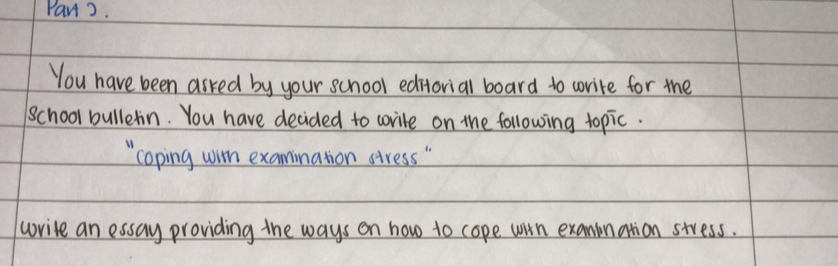 Part 3.
You have been asked by your school editorial board to write for the
school bulletin. You have decided to write on the following topic.
"coping with examination stress"
write an essay providing the ways on how to cope with examination stress.